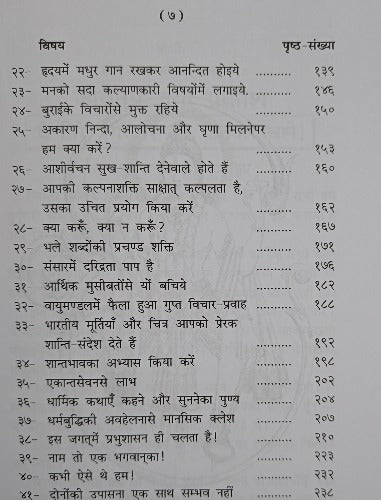 ( ७ )
विषय पृष्ठ-संख्या
२२- हृदयमें मधुर गान रखकर आनन्दित होइये .......... १३९
२३- मनको सदा कल्याणकारी विषयोंमें लगाइये. .......... १४६
२४- बुराईके विचारोंसे मुक्त रहिये .......... १५०
२५- अकारण निन्दा, आलोचना और घृणा मिलनेपर
हम क्या करें? .......... १५३
२६- आशीर्वचन सुख-शान्ति देनेवाले होते हैं .......... १६०
२७- आपकी कल्पनाशक्ति साक्षात् कल्पलता है,
उसका उचित प्रयोग किया करें .......... १६२
२८- क्या करूँ, क्या न करूँ? .......... १६७
२९- भले शब्दोंकी प्रचण्ड शक्ति .......... १७१
३०- संसारमें दरिद्रता पाप है .......... १७६
३१ आर्थिक मुसीबतोंसे यों बचिये .......... १८२
३२- वायुमण्डलमें फैला हुआ गुप्त विचार-प्रवाह .......... १८८
३३- भारतीय मूर्तियाँ और चित्र आपको प्रेरक
शान्ति-संदेश देते हैं .......... १९२
३४- शान्तभावका अभ्यास किया करें .......... १९८
३५- एकान्तसेवनसे लाभ .......... २०२
३६- धार्मिक कथाएँ कहने और सुननेका पुण्य .......... २०४
३७- धर्मबुद्धिकी अवहेलनासे मानसिक क्लेश .......... २०७
३८- इस जगत्‌में प्रभुशासन ही चलता है! .......... २१०
३९- नाम तो एक भगवान्‌का! .......... २२३
४०- कभी ऐसे थे हम! .......... २३२
४१- दोनोंकी उपासना एक साथ सम्भव नहीं .......... २३८